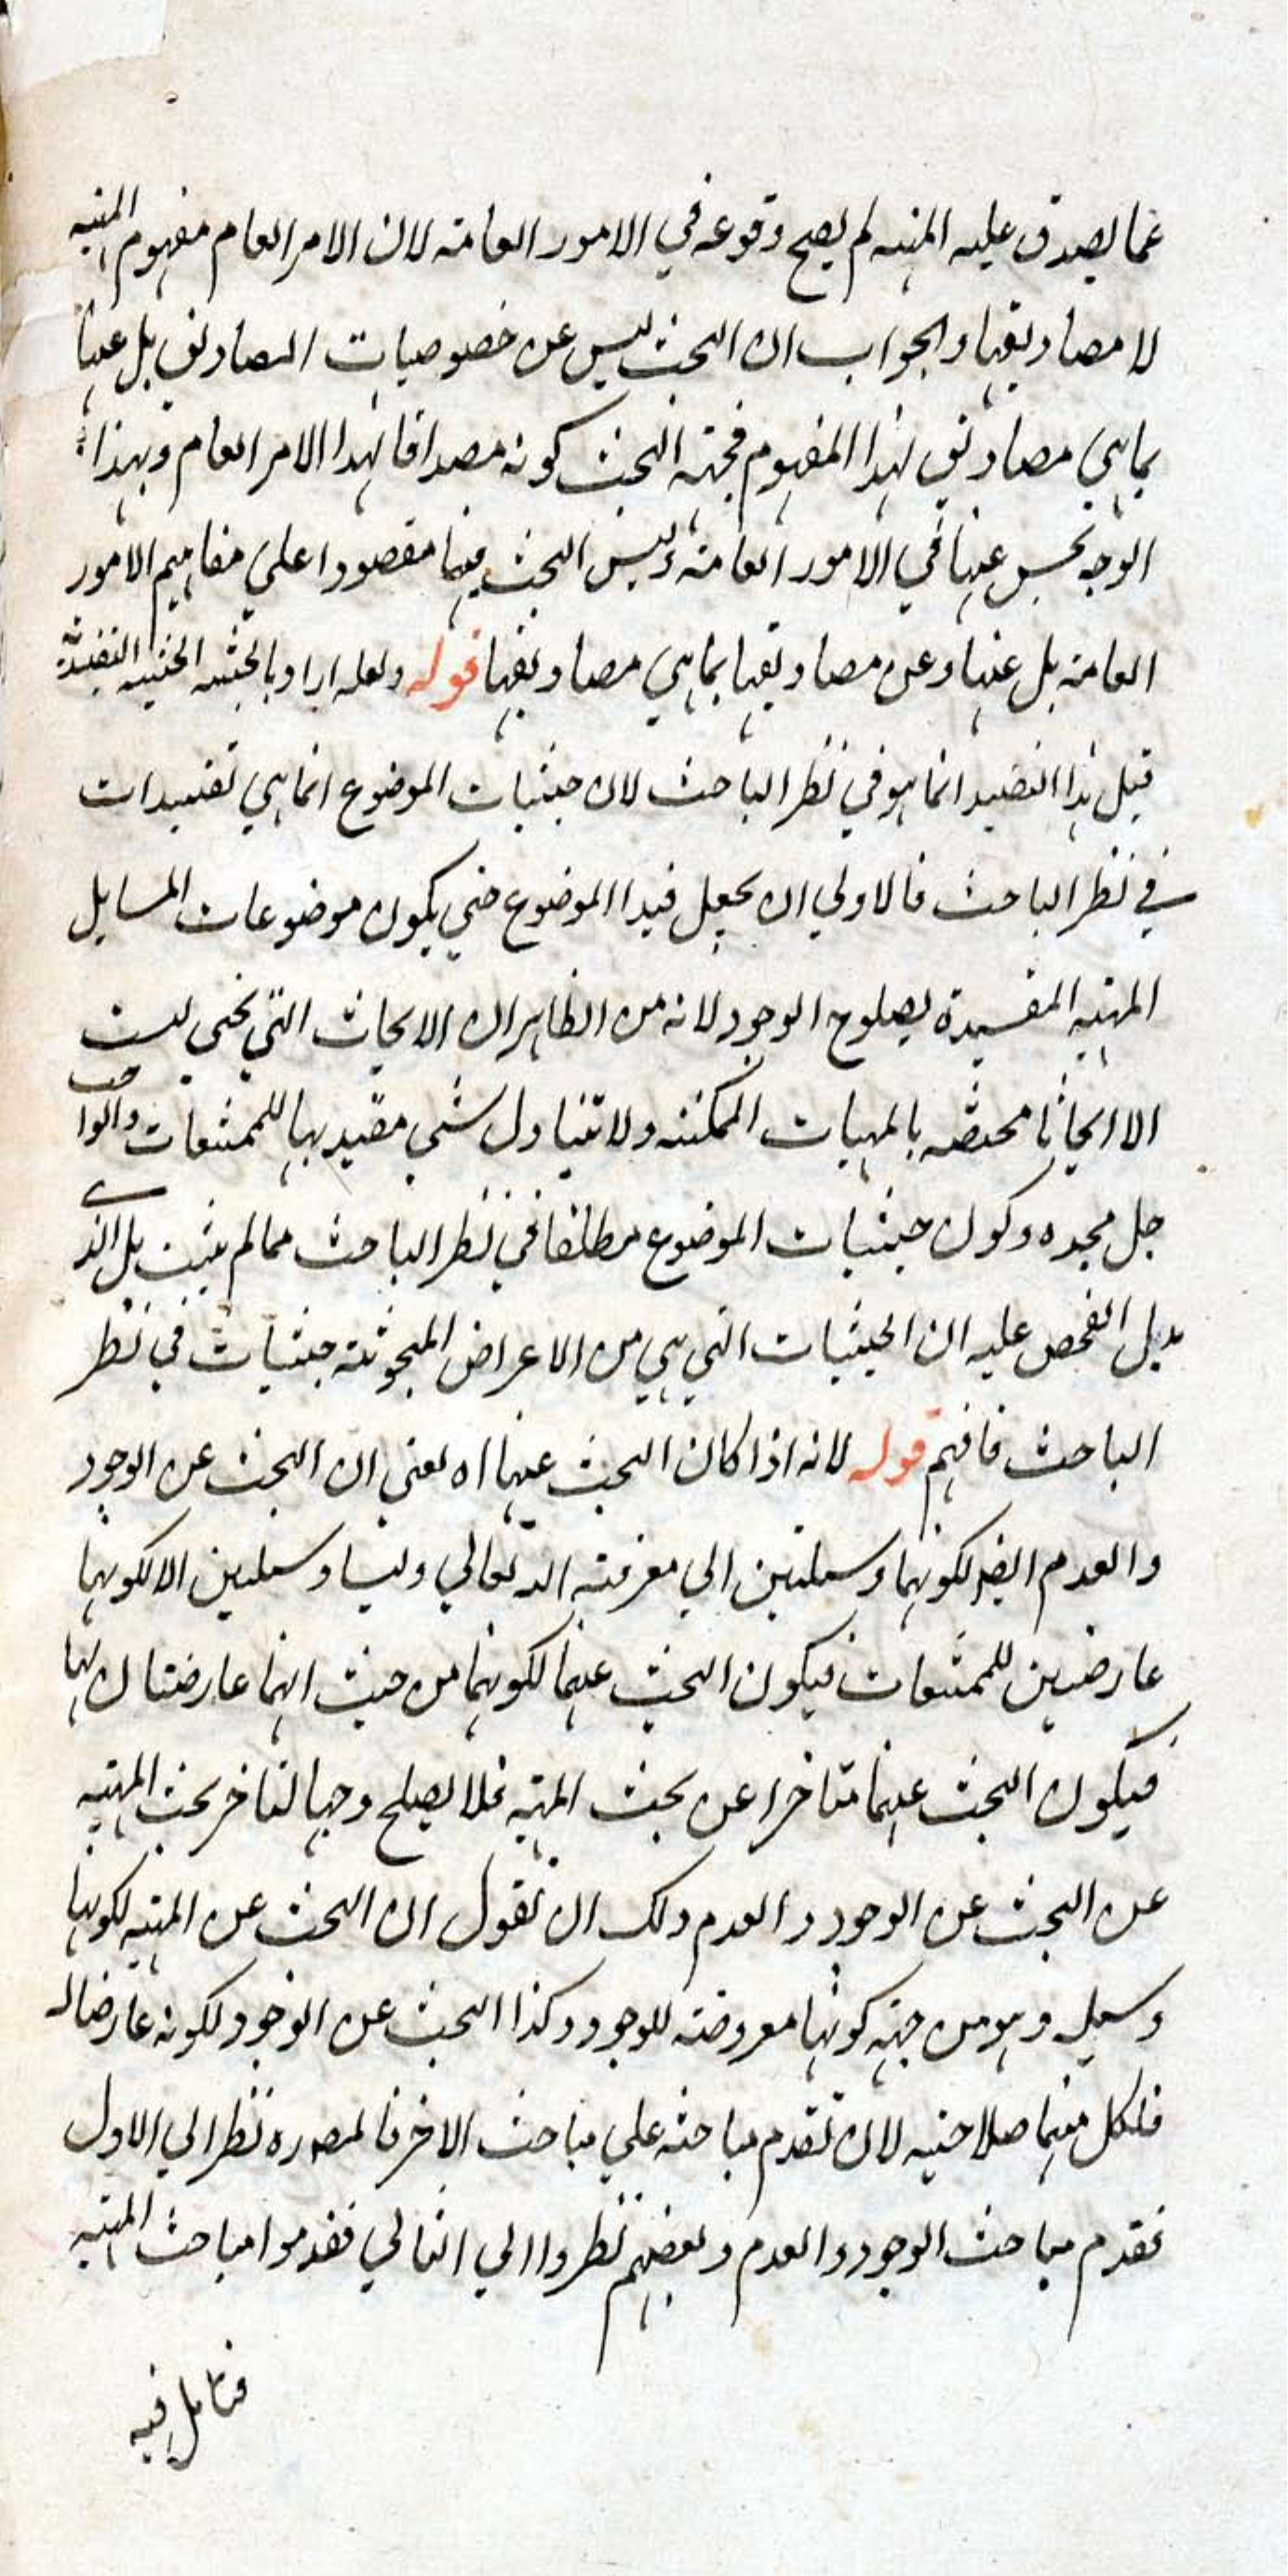 عما يصدق عليه المهيه لم يصح وقوعه في الامور العامة لان الامر العام مفهوم المهيه
لا مصاديقها والجواب ان البحث ليس عن خصوصيات المصاديق بل عنها
بما هي مصاديق لهذا المفهوم فجهة البحث كونه مصداقا لهذا الامر العام وبهذا
الوجه يحسن عنها في الامور العامة وليس البحث فيها مقصودا علي مفاهيم الامور
العامة بل عنها وعن مصاديقها بما هي مصاديقها قوله ولعله اراد بالحيثيه الحيثيه التقييدية
قيل هذا التقييد انما هو في نظر الباحث لان حيثيات الموضوع انما هي تقييدات
في نظر الباحث فالاولي ان يجعل قيدا الموضوع حتي يكون موضوعات المسايل
المهيه المقيدة بصلوح الوجود لانه من الظاهر ان الابحاث التي نحن ليست
الا ابحاثا مختصه بالمهيات الممكنه ولا تتناول شي مقيد بها للممتنعات والواجب
جل مجده وكون حيثيات الموضوع مطلقا في نظر الباحث مما لم يثبت بل الذي
يدل الفحص عليه ان الحيثيات التي هي من الاعراض المبحوثة حيثيات في نظر
الباحث فافهم قوله لانه اذا كان البحث عنها اه يعني ان البحث عن الوجود
والعدم ايضا لكونهما وسيلتين الي معرفته الله تعالي وليسا وسيلتين الا لكونهما
عارضين للممتنعات فيكون البحث عنهما لكونهما من حيث انهما عارضتان لها
فيكون البحث عنهما متاخرا عن بحث المهيه فلا يصلح وجها لتاخر بحث المهيه
عن البحث عن الوجود والعدم ولك ان تقول ان البحث عن المهيه لكونها
وسيله وهو من جهة كونها معروضة للوجود وكذا البحث عن الوجود لكونه عارضا له
فلكل منهما صلاحيه لان تقدم مباحثه علي مباحث الاخر فالمص ره نظر الي الاول
فقدم مباحث الوجود والعدم وبعضهم نظروا الي الثاني فقدموا مباحث المهيه
فتامل فيه